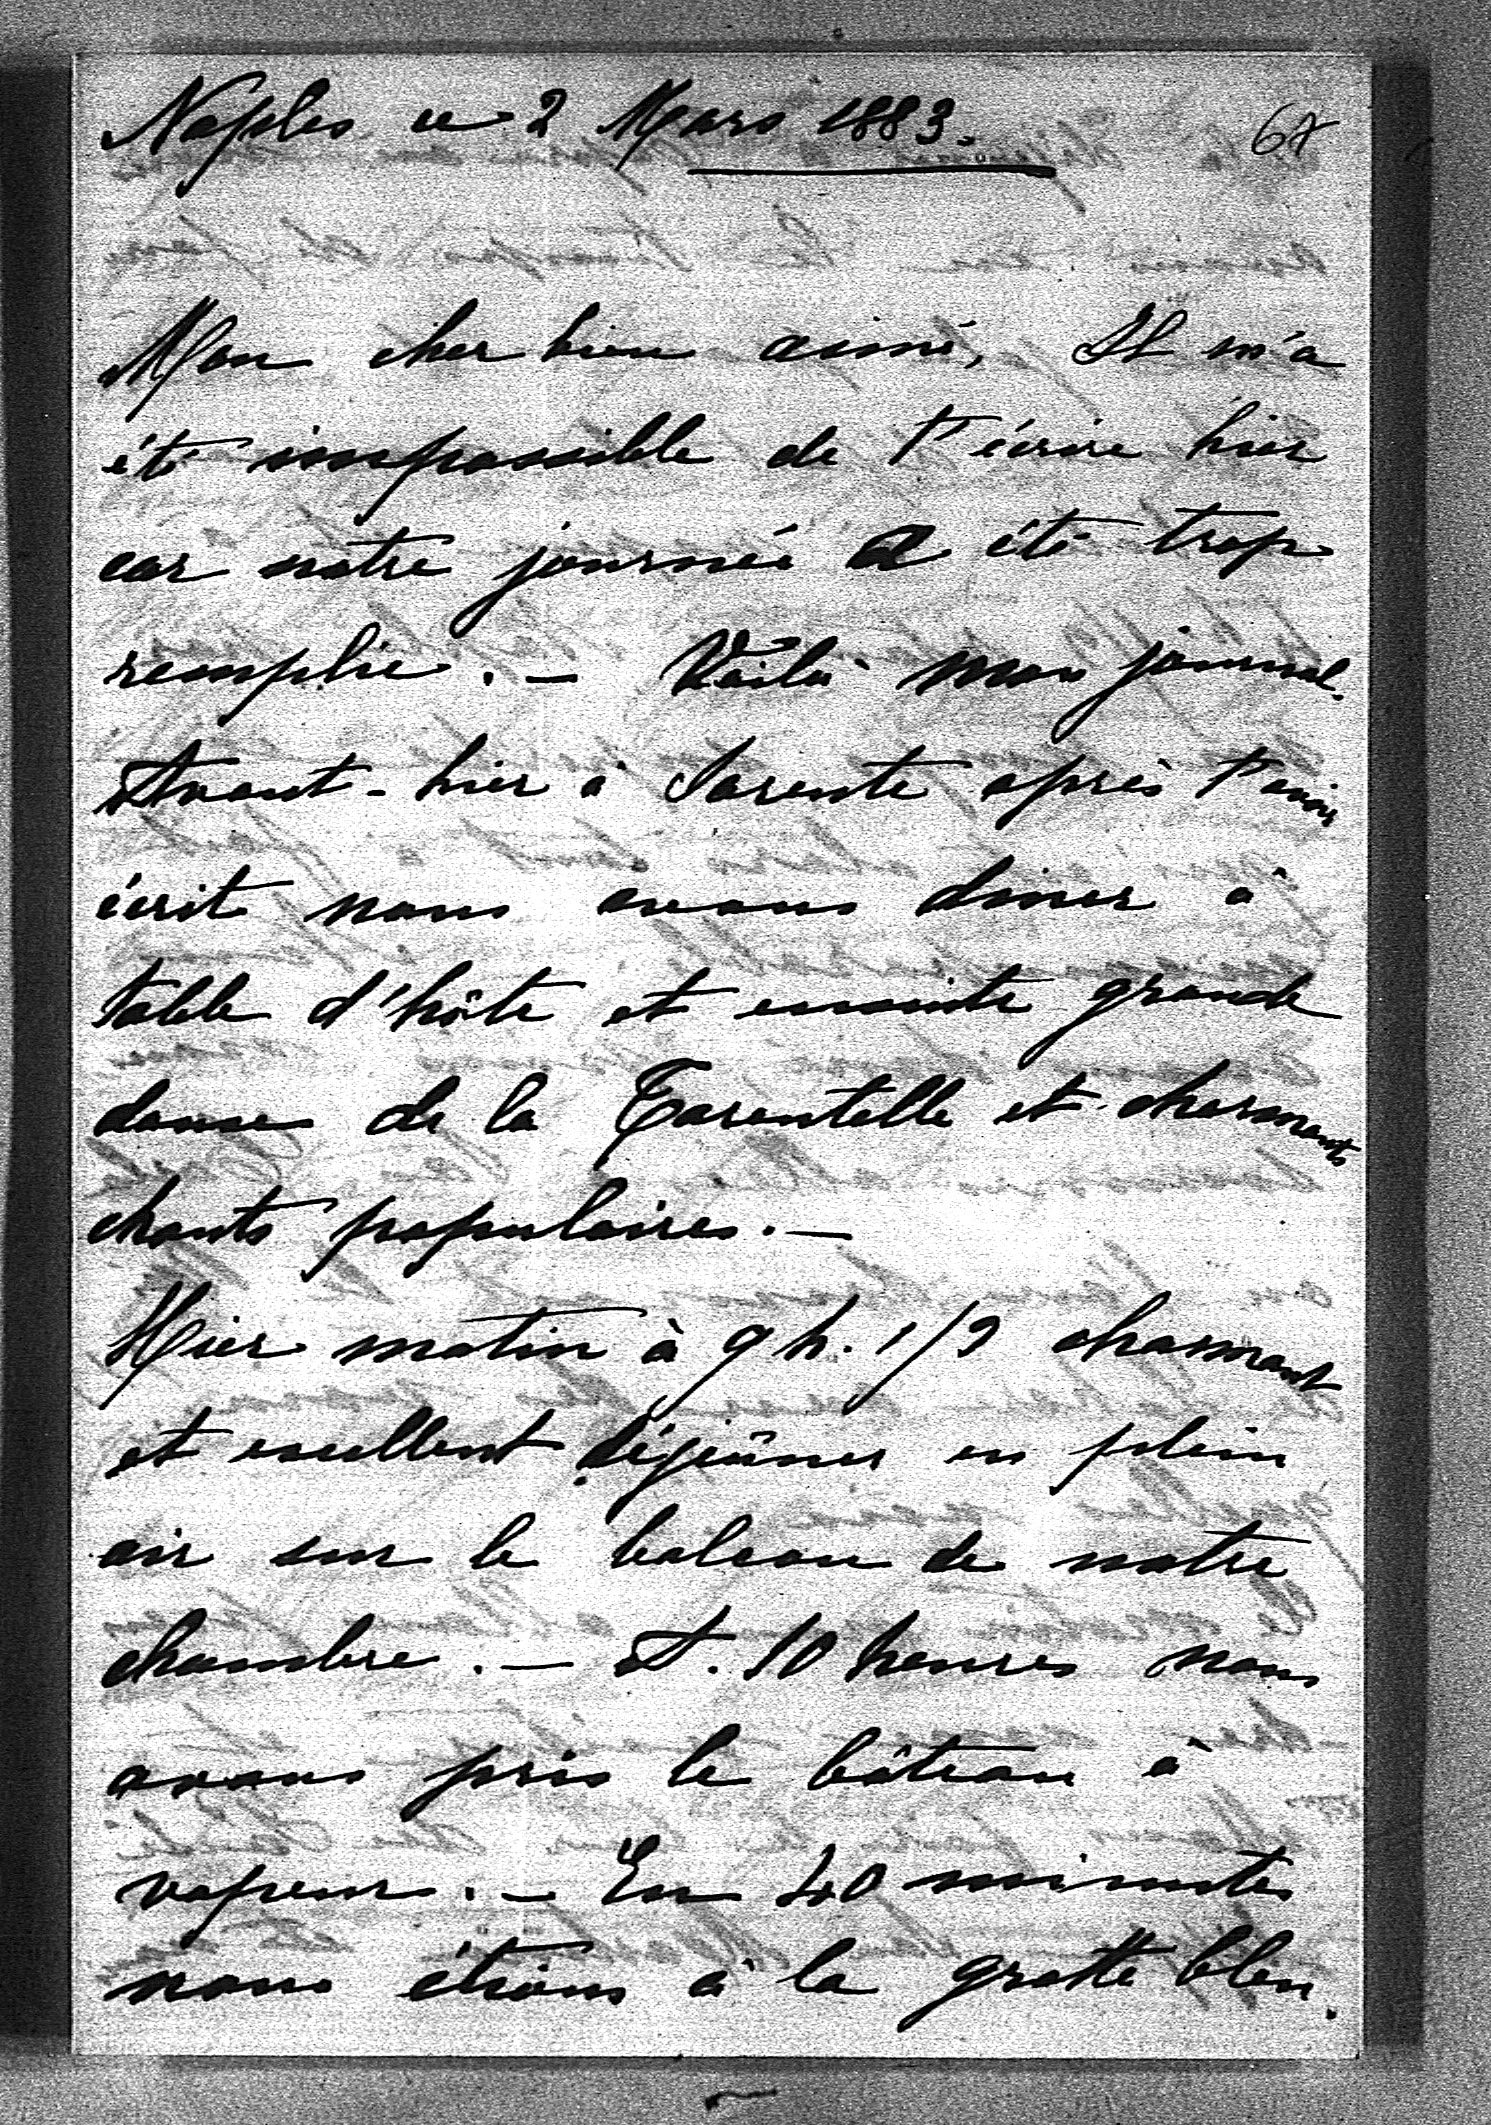 Naples ce 2 Mars 1883.
Mon cher bien aimé, Il m'a
été impossible de t'écrire hier
car notre journée a été trop
remplie. — Voilà mon journal.
Avant-hier à Sorente après t'avoir
écrit nous avons diner à
table d'hôte et ensuite grande
danse de la Tarentelle et charmants
chants populaires. —
Hier matin à 9 h. 1/2 charmant
et excellent déjeûner en plein
air sur le balcon de notre
chambre. — A. 10 heures nous
avons pris le bâteau à
vapeur. — En 40 minutes
nous étions à la grotte bleu.